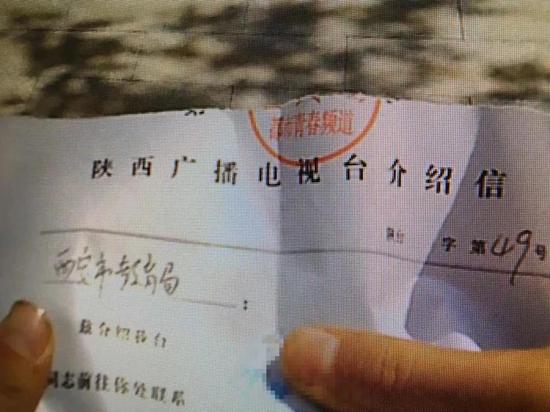 都市青春频道
陕西广播电视台介绍信
字第49号
西安市教育局:
兹介绍我台
同志前往你处联系